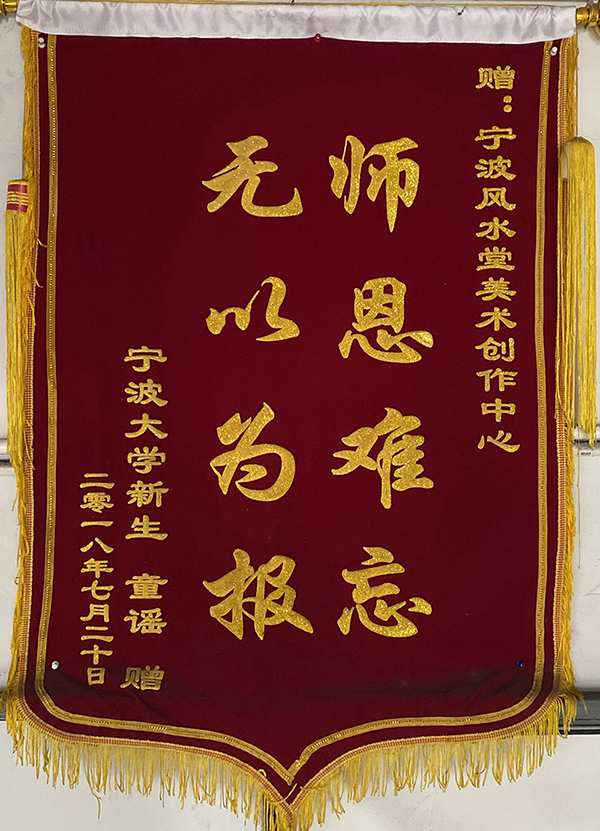 赠：宁波风水堂美术创作中心
师恩难忘
无以为报
宁波大学新生 童谣 赠
二零一八年七月二十日